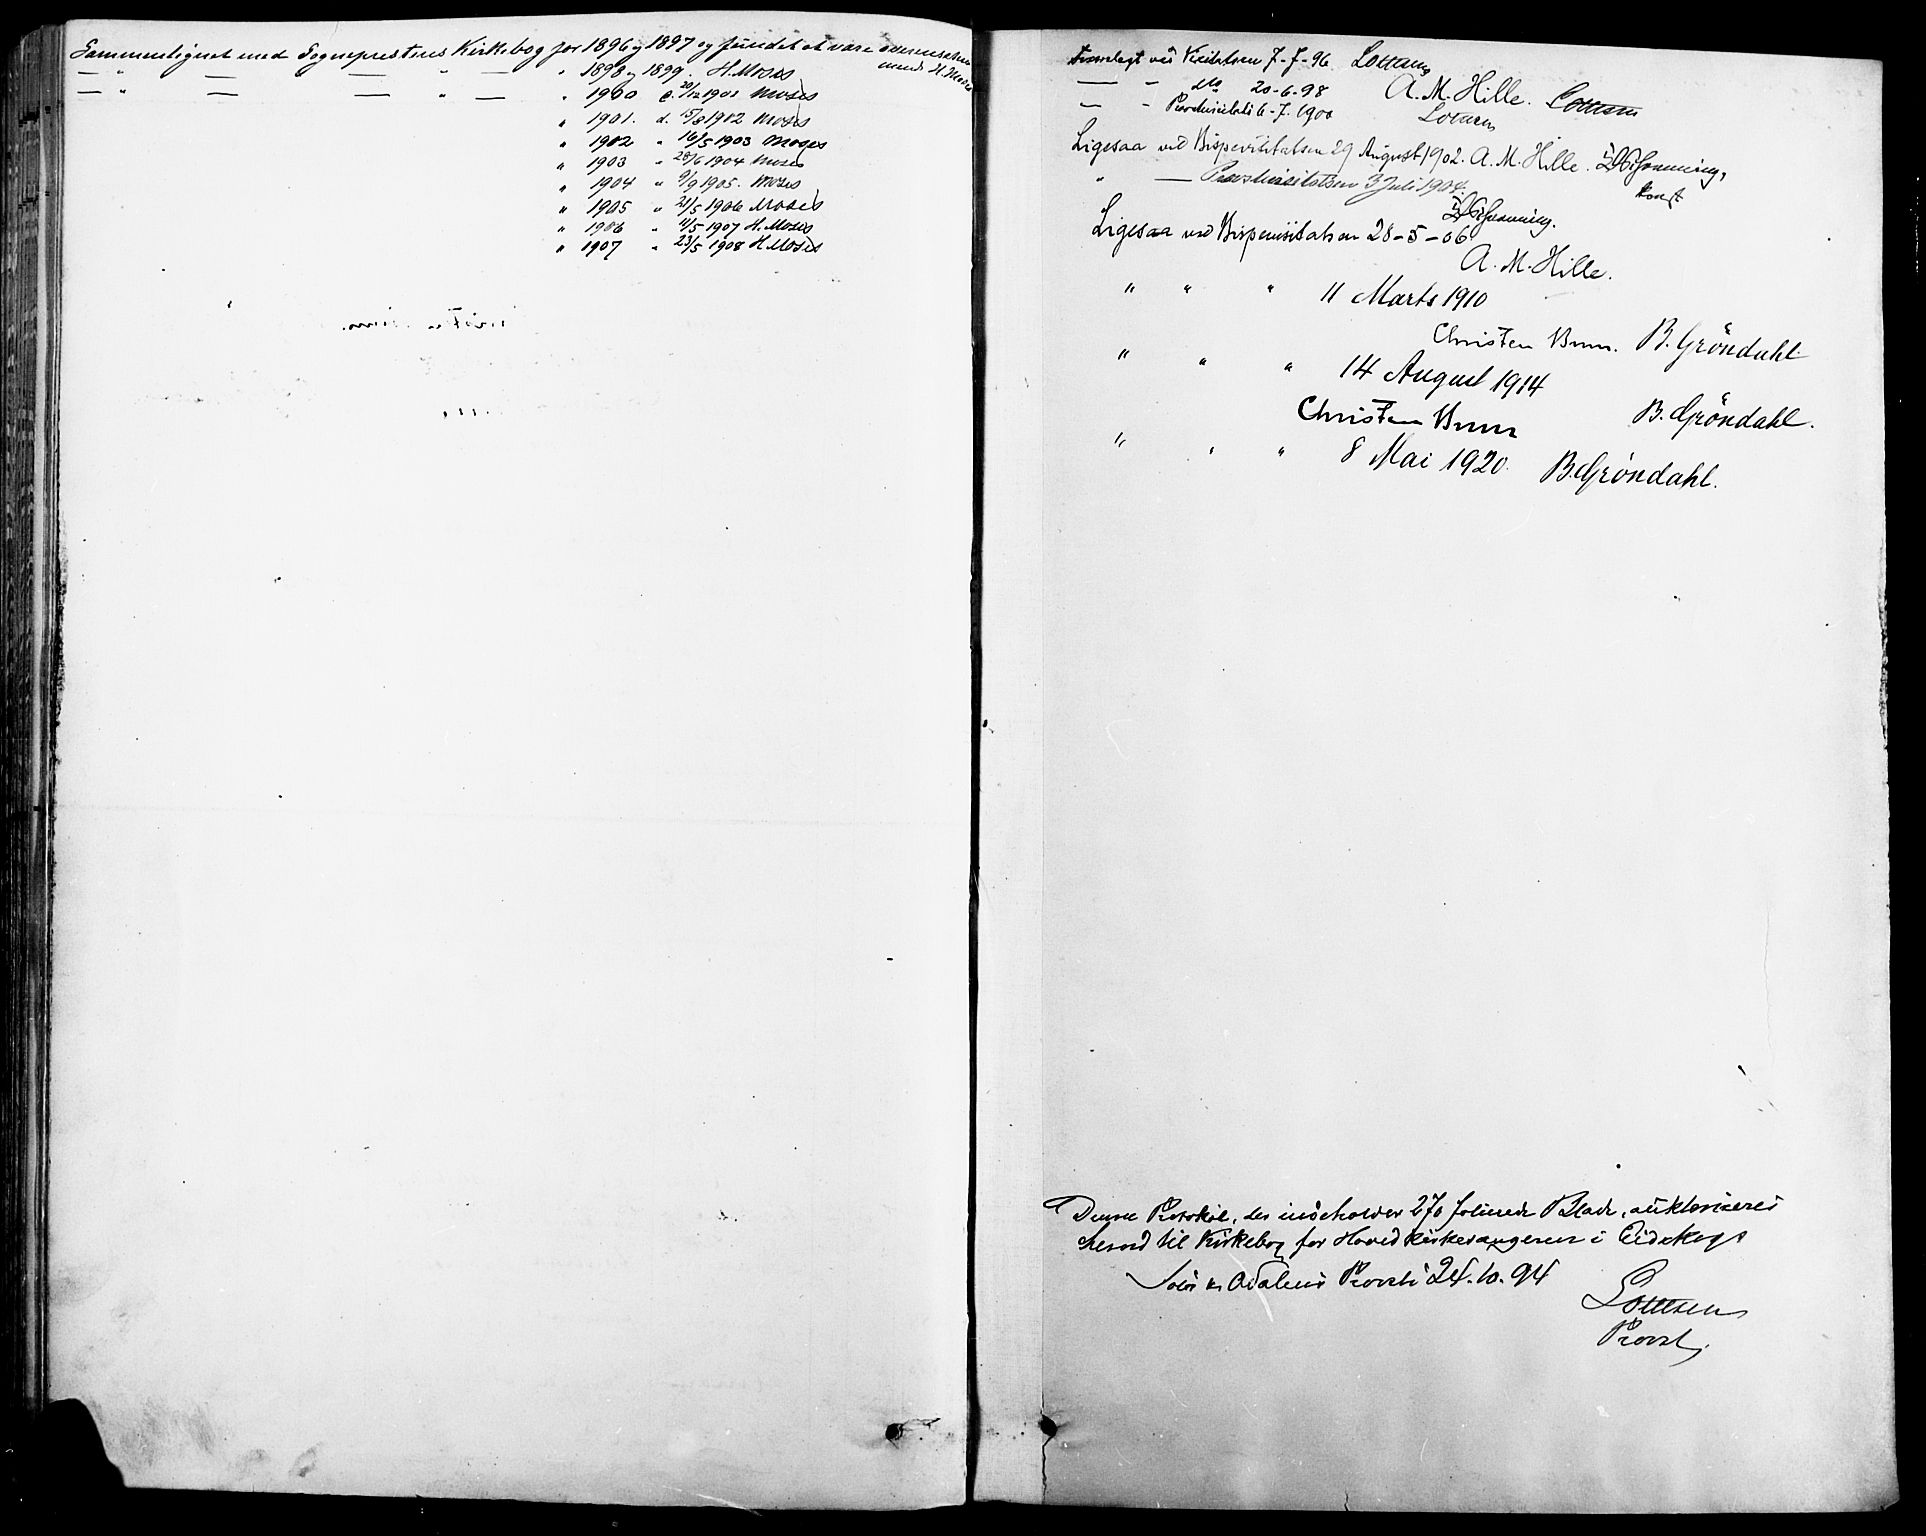 Sammenlignet med Sognepræstens Kirkebog for 1896 og 1897 og fundet at være overensstem
mende H. Moses
— " — — " — " 1898 og 1899. H. Moses
— " — — " — " 1900 d. 20/12 1901 Moses
" 1901. d. 15/8 1902 Moses
" 1902 " 16/5 1903 Moses
" 1903 " 28/6 1904 Moses
" 1904 " 9/9 1905. Moses
" 1905 " 21/5 1906 Moses
" 1906 " 11/5 1907 H. Moses
" 1907 " 23/5 1908 H. Moses
Fremlagt ved Visitatsen 7-7-96 Lottsen
— " dto 20-6-98 A. M. Hille. Lottsen
— " Provstevisitats 6-7-1900 Lottsen
Ligesaa ved Bispevisitatsen 29 August 1902. A. M. Hille.
konst
" — Provstevisitatsen 3 Juli 1904.
Ligesaa ved Bispevisitatsen 28-5-06
A. M. Hille.
" " " 11 Marts 1910
Christen Brun. B. Gröndahl
" " " 14 August 1914
Christen Brun B. Gröndahl.
" " " 8 Mai 1920. B. Gröndahl.
Denne Protokol, der indeholder 270 folierede Blade, auktoriseres
herved til Kirkebog for Hovedkirkesangeren i Eidskog
Solør og Odalens Provsti 24-10-94
Lottsen
Provst